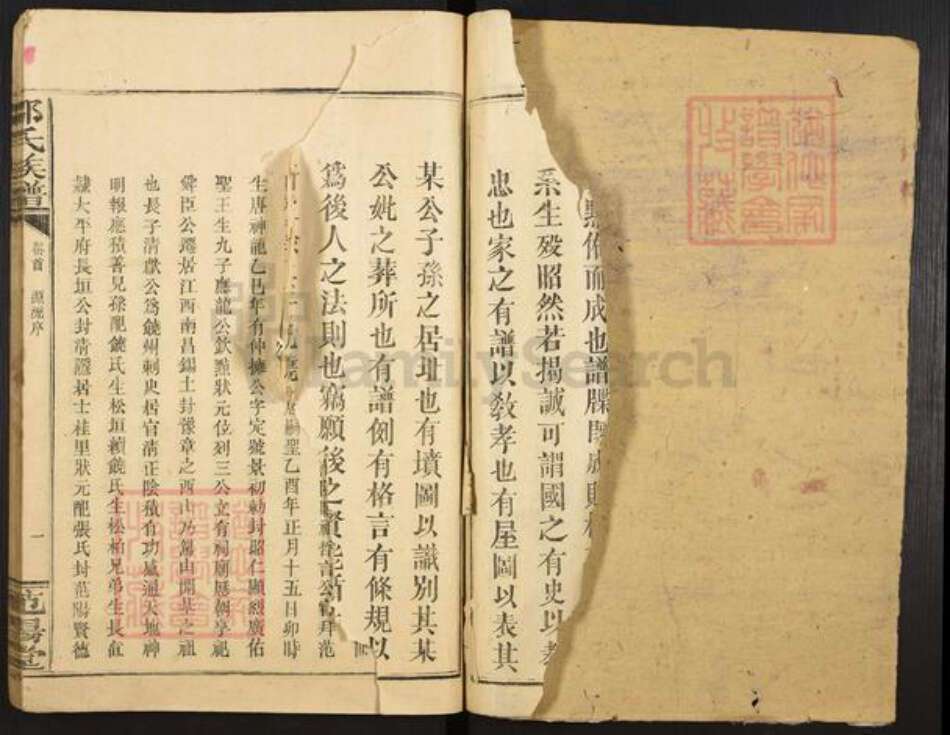 點依而成也譜牒
系生歿昭然若揭誠可謂國之有史以
忠也家之有譜以敎孝也有屋圖以表其
某公子孫之居址也有墳圖以識別其某
公妣之葬所也有譜例有格言有條規以
爲後人之法則也竊願後之賢能
聖乙酉年正月十五日卯時
生唐神龍乙巳年有仲據公字定號景初勅封昭仁顯烈廣佑
聖王生九子應龍公欽點狀元位列三公立有祠廟歷朝享祀
舜臣公遷居江西南昌錫土封豫章之西山乃錫山開基之祖
也長子清獻公爲饒州刺史居官清正陰積有功城通天地神
明報應積善兒孫配饒氏生松垣續饒氏生松柏兄弟生長直
隸太平府長垣公封清謐居士桂里狀元配張氏封范陽賢德
鄒氏族譜
卷首 源流序
一
范陽堂
FamilySearch